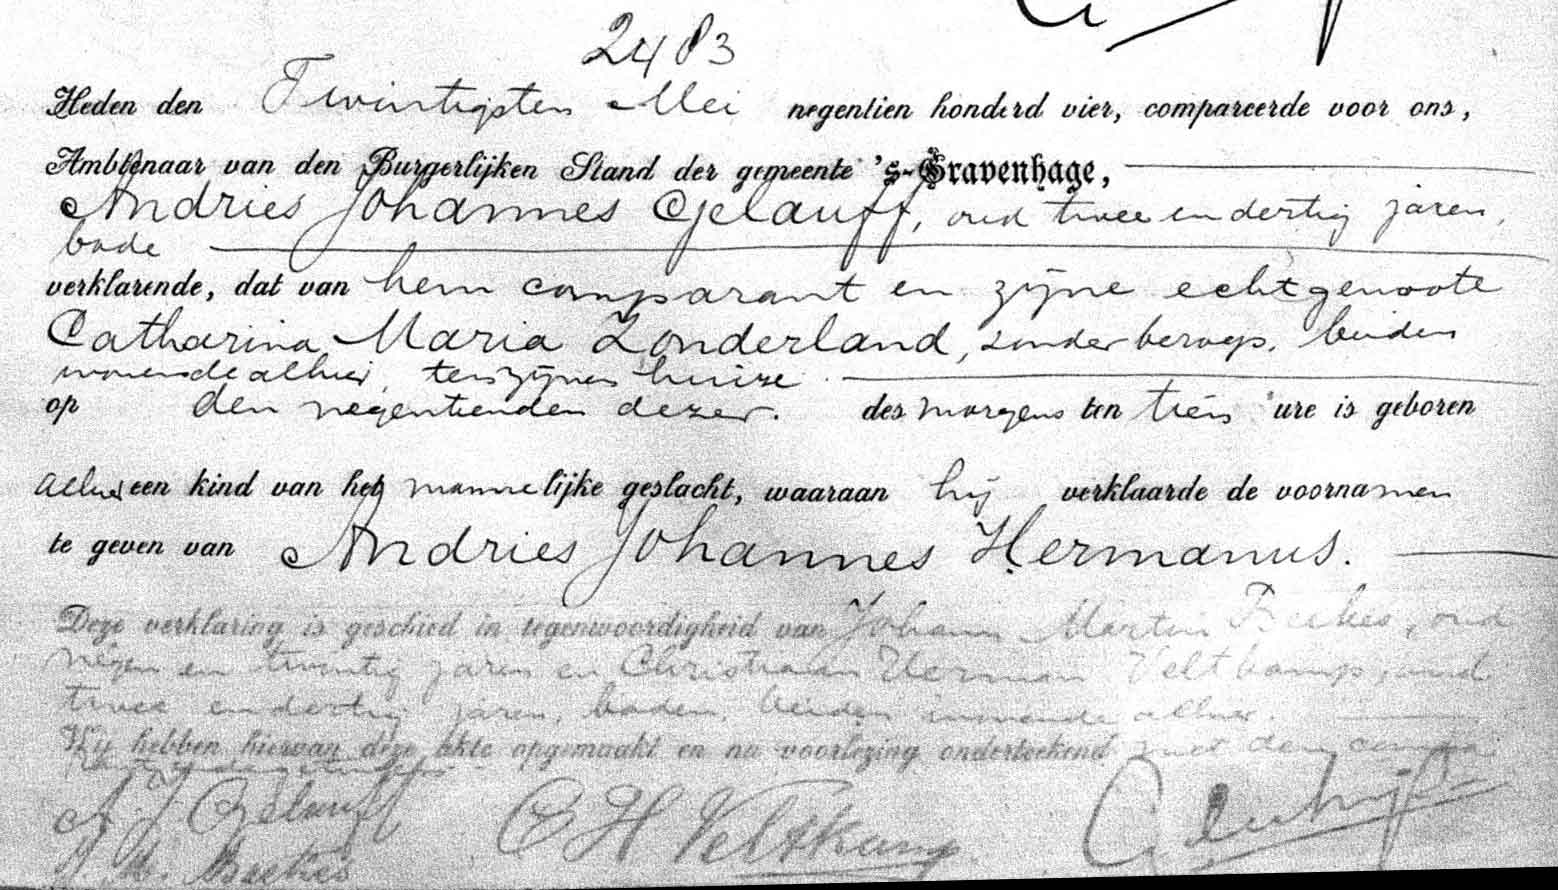 2483
Heden den Twintigsten Mei negentien honderd vier, compareerde voor ons,
Ambtenaar van den Burgerlijken Stand der gemeente 's-Gravenhage,
Andries Johannes Gelauff, oud twee en dertig jaren,
bode
verklarende, dat van hem comparant en zijne echtgenoote
Catharina Maria Zonderland, zonder beroep, beiden
wonende alhier, ten zijnen huize
op den negentienden dezer. des morgens ten tien ure is geboren
alhier een kind van het mannelijke geslacht, waaraan hij verklaarde de voornamen
te geven van Andries Johannes Hermanus.
Deze verklaring is geschied in tegenwoordigheid van Johann Martin Beekes, oud
negen en twintig jaren en Christiaan Herman Veltkamp, oud
twee en dertig jaren, boden, beiden wonende alhier.
Wij hebben hiervan deze akte opgemaakt en na voorlezing onderteekend met den compa
rant en de getuigen
A J Gelauff C H Veltkamp
J. M. Beekes